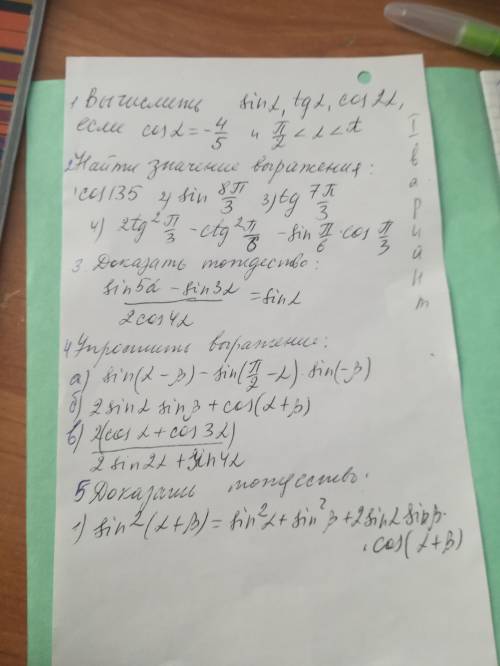 1 Вычислить sinα, tgα, cos2α,
если cosα = -4/5 и π/2 < α < π
2 Найти значение выражения:
1 cos135 2) sin 8π/3 3) tg 7π/3
4) 2tg² π/3 - ctg² π/6 - sin π/6 · cos π/3
3. Доказать тождество:
(sin5α - sin3α)/(2cos4α) = sinα
4 Упростить выражение:
а) sin(α-β) - sin(π/2 - α)·sin(-β)
б) 2sinα sinβ + cos(α+β)
в) 2(cosα + cos3α)/(2sin2α + sin4α)
5 Доказать тождество.
1) sin²(α+β) = sin²α + sin²β + 2sinα sinβ·
·cos(α+β)
I вариант